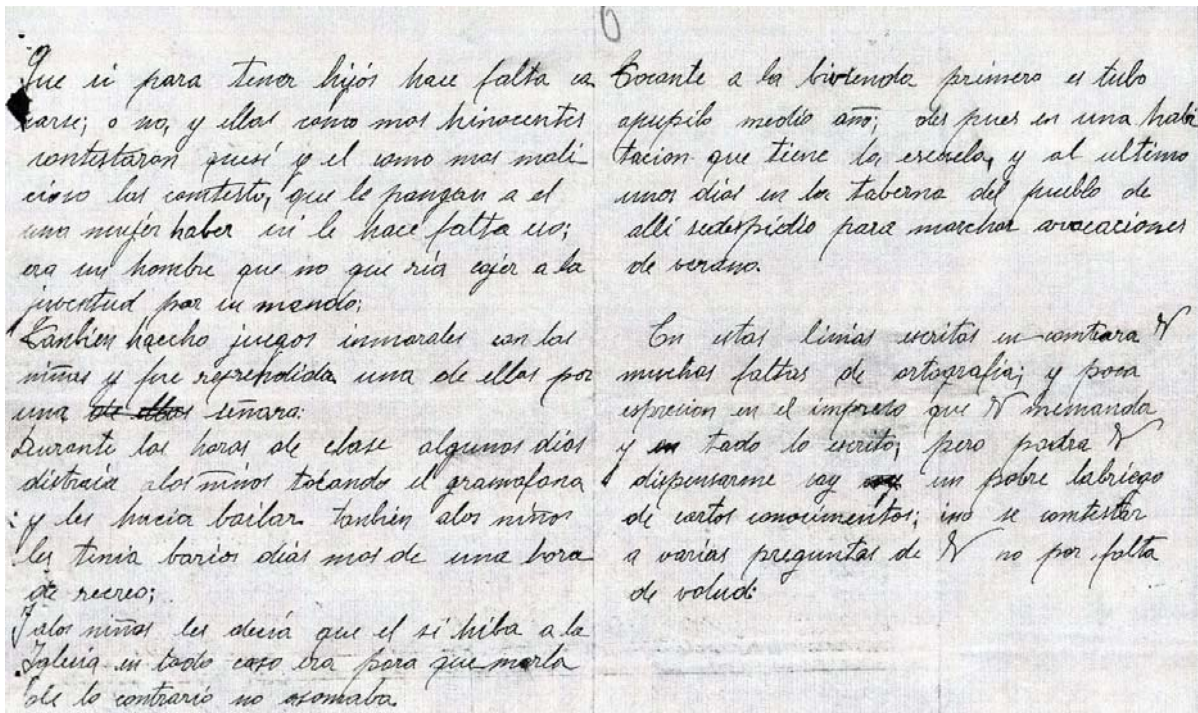 Que si para tener hijós hace falta ca
sarse; o no, y ellas como mas hinocentes
contestaron quesí y el como mas mali
cioso las comtesto, que le pongan a el
una mujér haber si le hace falta eso;
era un hombre que no que ría cojer a la
juventud por su mando;
Tanbien haecho juegos inmorales con las
niñas y fue reprendida una de ellas por
una de ellas señora:
Durante las horas de clase algunos dias
distraia alos niños tocando el gramafono
y les hacia bailar tanbién alos niños
les tenia barios diás mas de una hora
de recreo;
Y alos niños les decia que el si hiba a la
Iglesia en todo caso era para que marla
de lo contrario no asomaba.
6
Tocante a la bivienda primero es tubo
apupilo medio año; des pues en una habi
tacion que tiene la escuela, y al ultimo
unos dias en la taberna del pueblo de
alli sedespidio para marchar avacaciones
de verano.
En estas linias escritas en contrara V
muchas faltas de ortografia; y poca
espresion en el impreso que V memanda
y en todo lo escrito; pero podra V
dispensarme soy un pobre labriego
de cortos conocimentos; ino se comtestar
a varias preguntas de V no por falta
de volud: